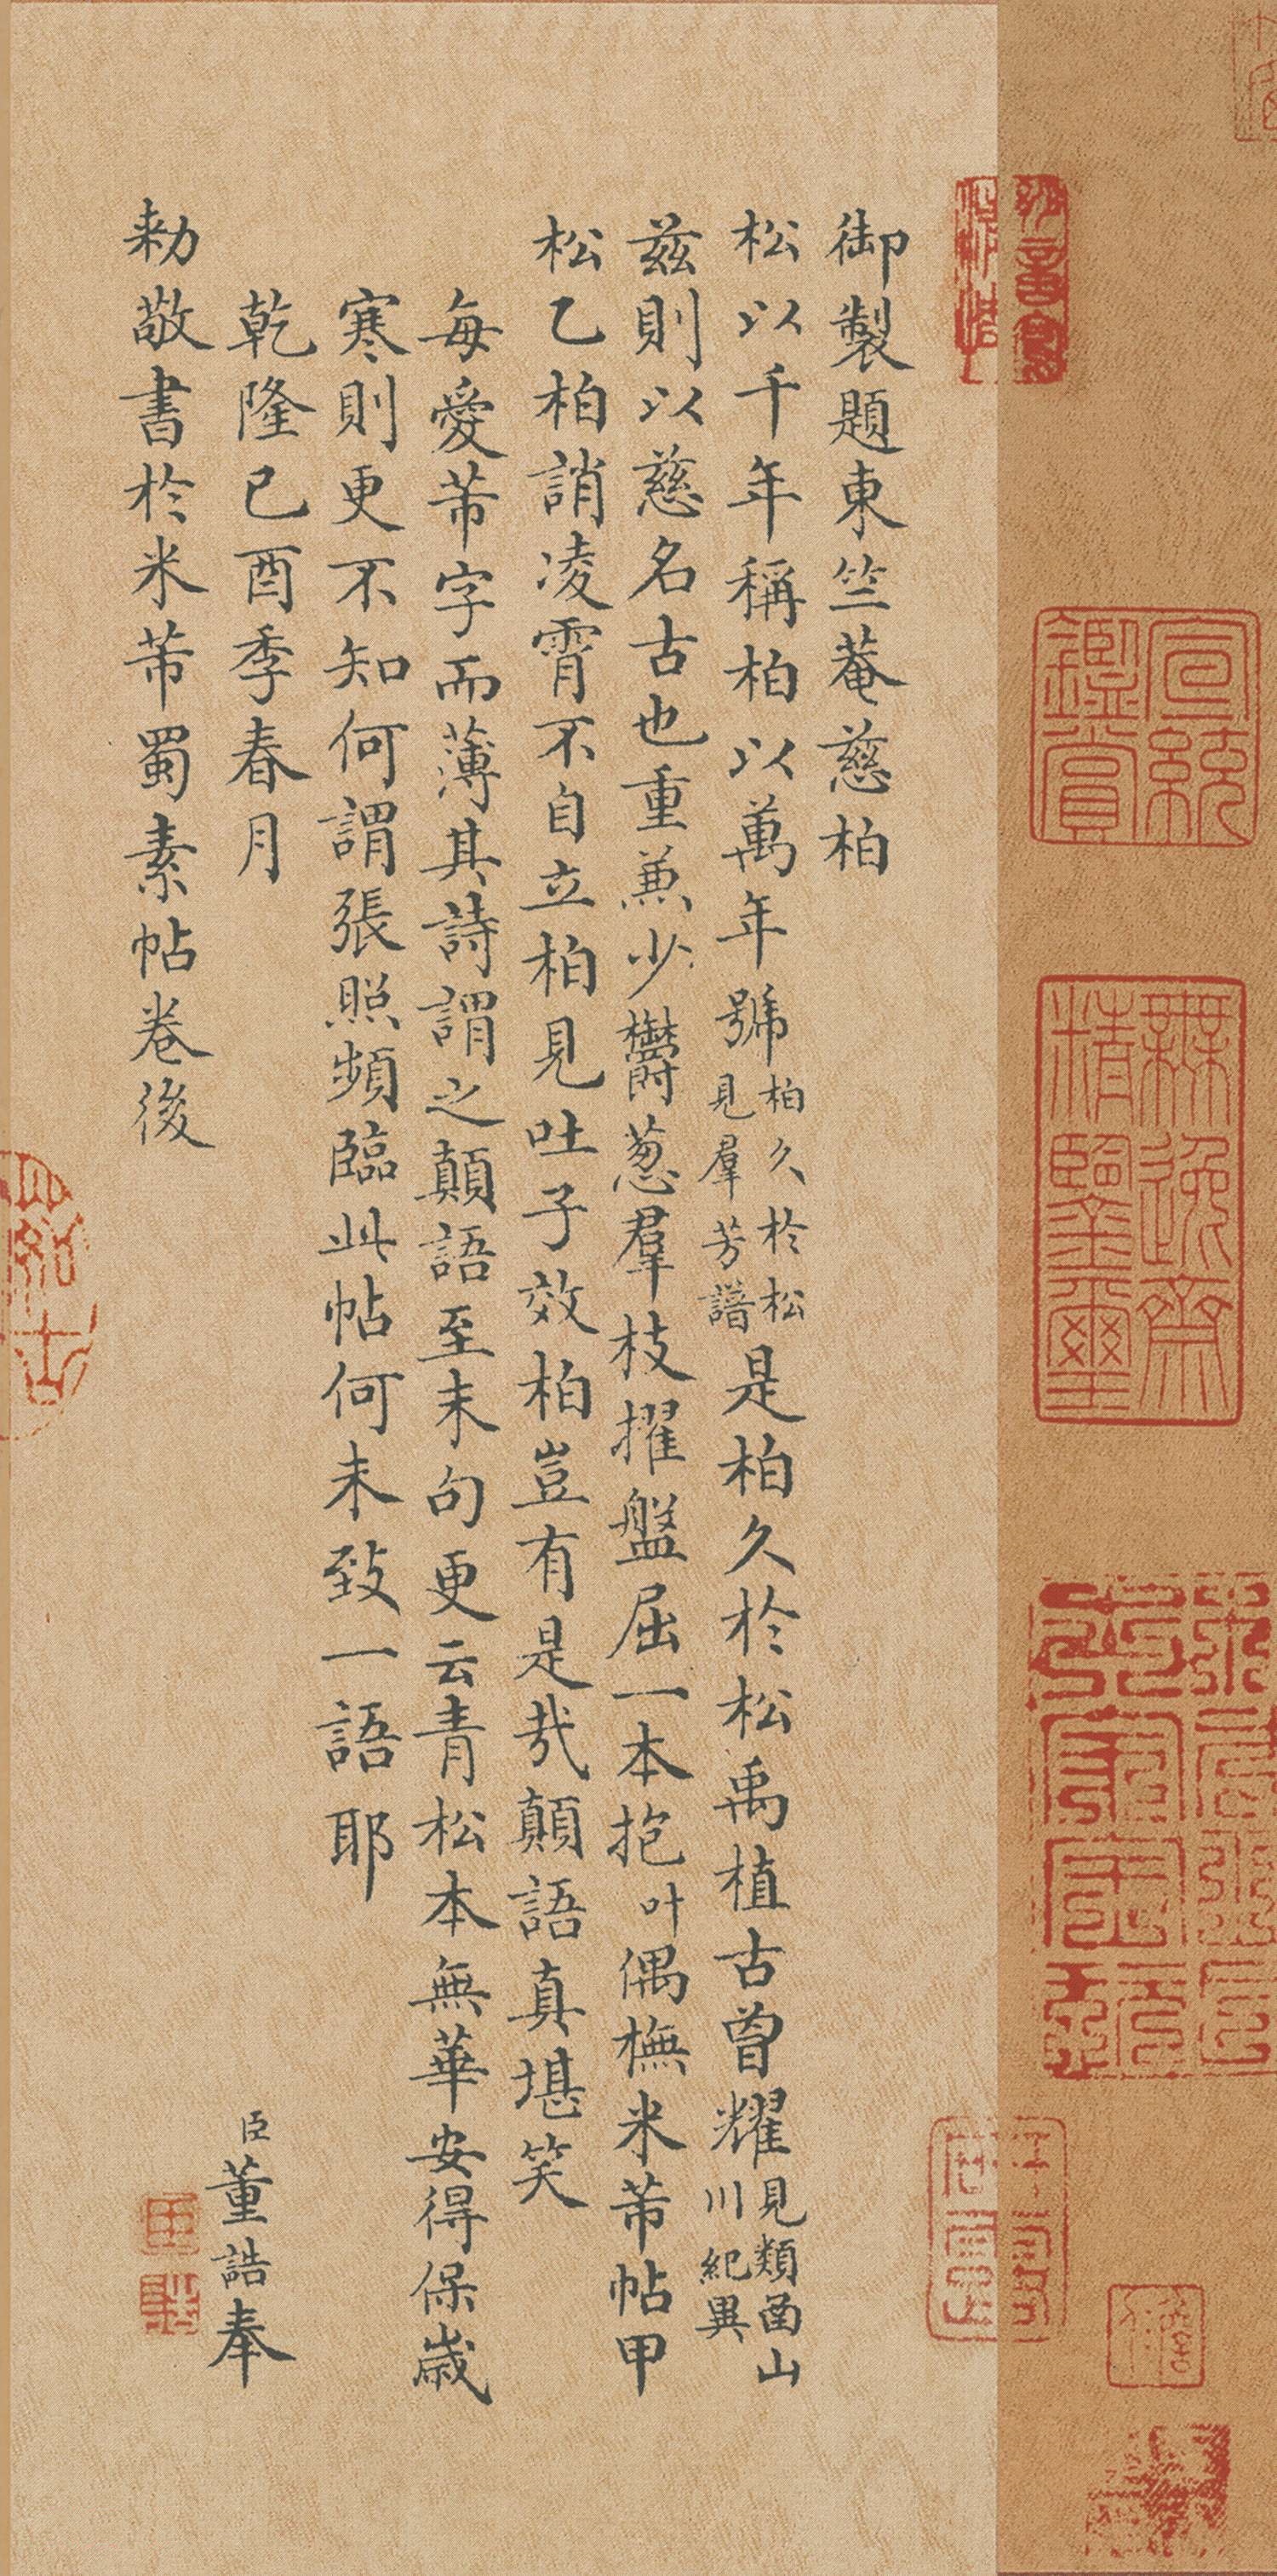 御製題東竺菴慈柏
松以千年稱柏以萬年號柏久於松見羣芳譜是柏久於松禹植古曾耀見類函山川紀異
茲則以慈名古也重兼少欝葱羣枝擢盤屈一本抱叶偶橅米芾帖甲
松乙柏誚凌霄不自立柏見吐子效柏豈有是哉顛語真堪笑
每愛芾字而薄其詩謂之顛語至末句更云青松本無華安得保歲
寒則更不知何謂張照頻臨此帖何未致一語耶
乾隆己酉季春月
臣董誥奉
勑敬書於米芾蜀素帖卷後
宣統鑑賞
無逸齋精鑒璽